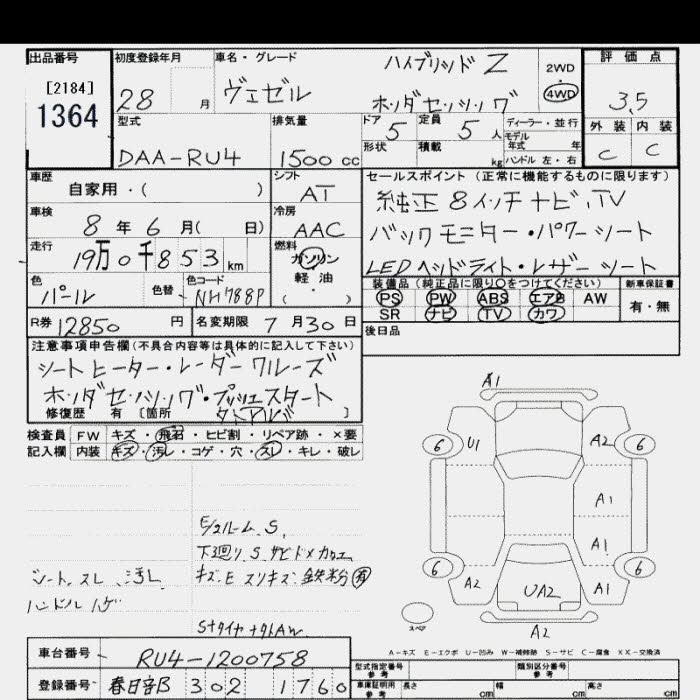 出品番号
[2184]
1364
初度登録年月
28 月
車名・グレード
ヴェゼル
ハイブリッド Z
ホンダセンシング
2WD
・
4WD
評価点
3.5
外装 内装
C C
型式
DAA-RU4
排気量
1500 cc
ドア 5
定員 5 人
形状
積載 kg
ディーラー・並行
モデル
年式 年
ハンドル 左・右
車歴
自家用・( )
シフト
AT
車検
8 年 6 月( 日)
冷房
AAC
走行
19万0千853 km
燃料
ガソリン
軽油
( )
色
パール
色替
色コード
NH788P
R券 12850 円
名変期限 7 月 30 日
セールスポイント (正常に機能するものに限ります)
純正8インチナビ,TV
バックモニター・パワーシート
LEDヘッドライト・レザーシート
装備品 (純正品に限り〇をつけてください)
PS PW ABS エアB AW
SR ナビ TV カワ
新車保証書
有・無
後日品
注意事項申告欄 (不具合内容等は具体的に記入して下さい)
シートヒーター・レーダークルーズ
ホンダセンシング・プッシュスタート
修復歴 有 [箇所 ]
検査員 FW キズ・飛石・ヒビ割・リペア跡・×要
記入欄 内装 キズ・汚レ・コゲ・穴・スレ・キレ・破レ
下廻り S サビ
キズ E スリキズ 鉄粉 有
シート スレ 汚レ
ハンドル ハゲ
A1
6 U1 A2 6
A1
A1
6 A2 UA2 A1 6
スペア
A2
A-キズ E-エクボ U-凹み W-補修跡 S-サビ C-腐食 XX-交換済
車台番号 RU4-1200758
登録番号 春日部 302 1760
型式指定番号
参考
類別区分番号
参考
車庫証明用
参考
長さ cm 幅 cm 高さ cm